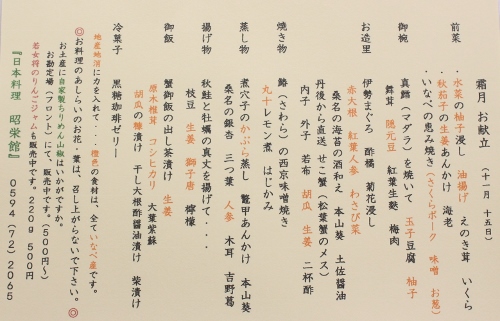 霜月 お献立 (十一月 十五日)
前菜
・水菜の柚子浸し 油揚げ えのき茸 いくら
・秋茄子の生姜あんかけ 海老
・いなべの恵み焼き(さくらポーク 味噌 お葱)
御椀
真鱈(マダラ)を焼いて 玉子豆腐 柚子
舞茸 隠元豆 紅葉生麩 梅肉
お造里
伊勢まぐろ 酢橘 菊花浸し
赤大根 紅葉人参 わさび菜
桑名の海苔の酒和え 本山葵 土佐醤油
丹後から直送 せこ蟹(松葉蟹のメス)
内子 外子 若布 胡瓜 生姜 二杯酢
焼き物
鰆(さわら)の西京味噌焼き
丸十レモン煮 はじかみ
蒸し物
煮穴子のかぶら蒸し 鼈甲あんかけ 本山葵
桑名の銀杏 三つ葉 人参 木耳 吉野葛
揚げ物
秋鮭と牡蠣の真丈を揚げて・・・
枝豆 生姜 獅子唐 檸檬
御飯
蟹御飯の出し茶漬け 生姜
原木椎茸 コシヒカリ 大葉紫蘇
胡瓜の糠漬け 干し大根酢醤油漬け 柴漬け
冷菓子
黒糖珈琲ゼリー
地産地消に力を入れて・・橙色の食材は、全ていなべ産です。
◎お料理のあしらいのお花、葉は、召し上がらないで下さい。◎
お土産に自家製ちりめん山椒はいかがですか。
お勘定場(フロント)にて、販売中です。(500円~)
若女将のりんごジャムも販売中です。220g 500円
『日本料理 昭栄館』 0594(72)2065